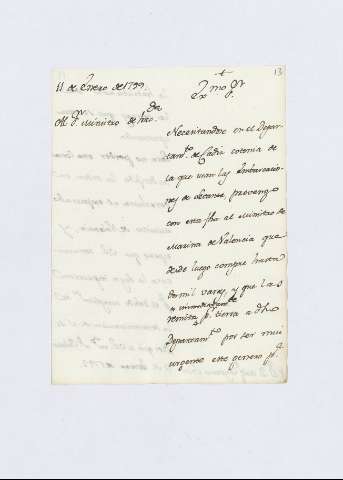 13
11 de Enero de 1799
+
Exmo Sr
Al Sr. Ministro de Hda
Necesitandose en el Depar-
tamto. de Cadiz cotonia de
la que usan las Embarcacio-
nes de Levante, prevengo
con esta fha al Ministro de
Marina de Valencia que
desde luego compre hasta
dos mil varas, y que las
remita p. tierra a dho
Departamto por ser mui
urgente este genero pa.